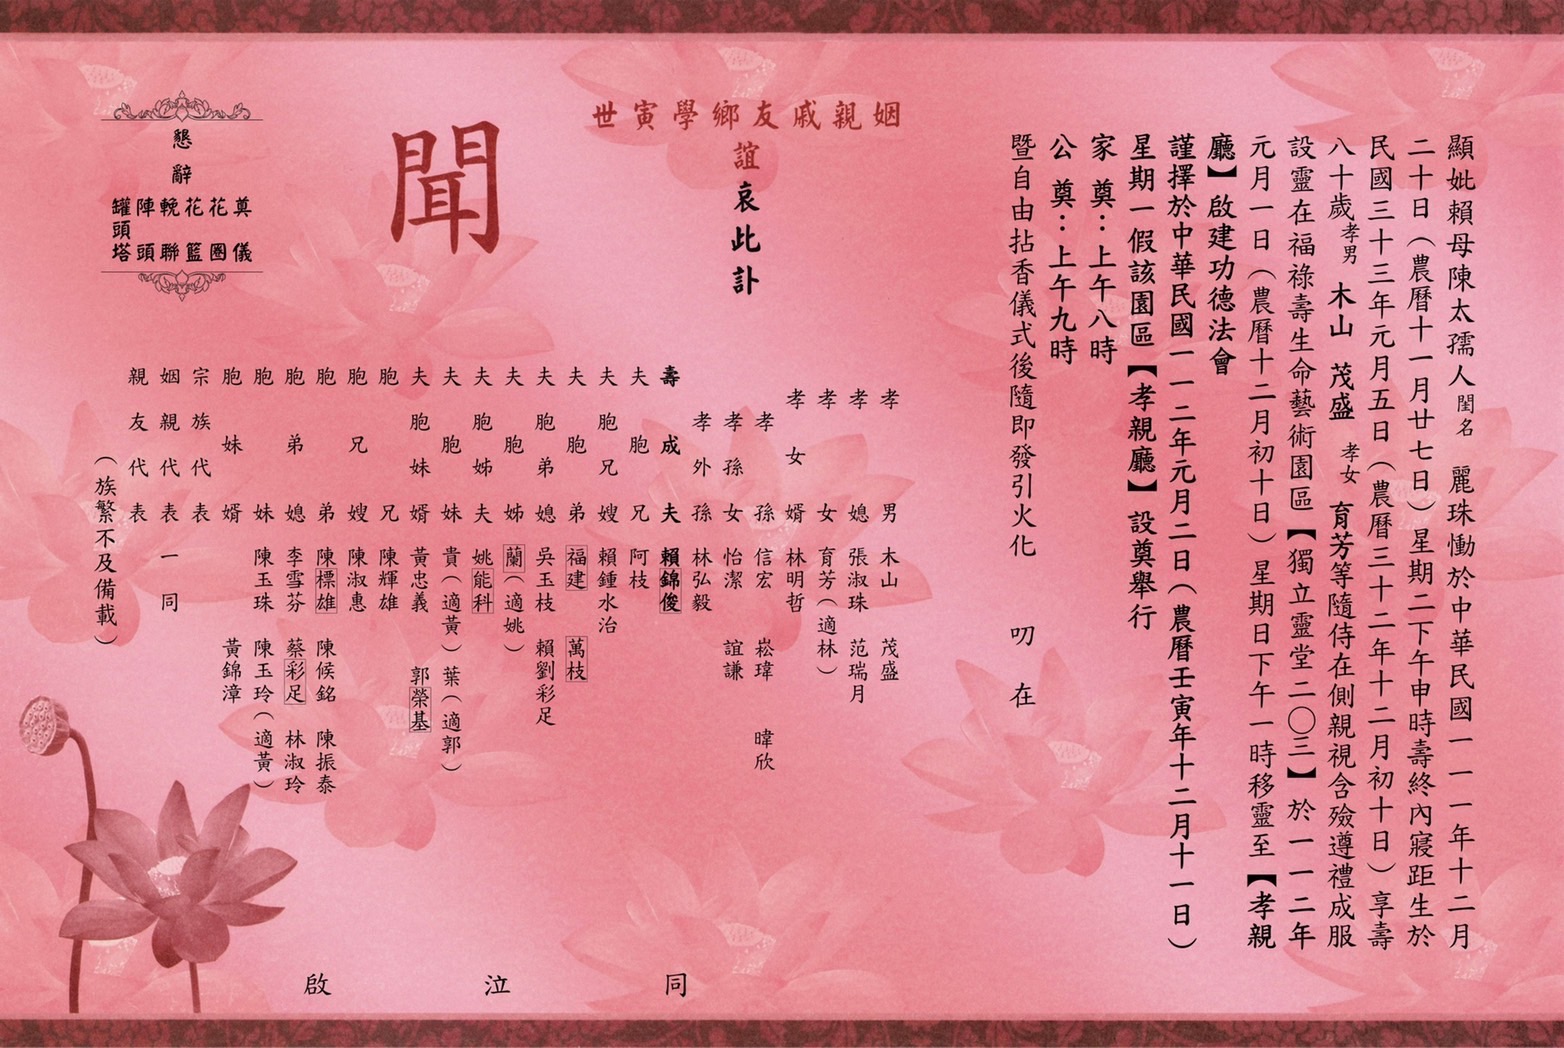 顯妣賴母陳太孺人閨名 麗珠慟於中華民國一一一年十二月
二十日（農曆十一月廿七日）星期二下午申時壽終內寢距生於
民國三十三年元月五日（農曆三十二年十二月初十日）享壽
八十歲孝男 木山 茂盛 孝女 育芳等隨侍在側親視含殮遵禮成服
設靈在福祿壽生命藝術園區【獨立靈堂二〇三】於一一二年
元月一日（農曆十二月初十日）星期日下午一時移靈至【孝親
廳】啟建功德法會
謹擇於中華民國一一二年元月二日（農曆壬寅年十二月十一日）
星期一假該園區【孝親廳】設奠舉行
家 奠：上午八時
公 奠：上午九時
暨自由拈香儀式後隨即發引火化 叨 在
姻親戚友鄉學寅世
誼哀此訃
聞
孝男 木山 茂盛
孝媳 張淑珠 范瑞月
孝女 育芳（適林）
孝女婿 林明哲
孝孫 信宏 崧瑋 暐欣
孝孫女 怡潔 誼謙
孝外孫 林弘毅
壽成夫 賴錦俊
夫胞兄 阿枝
夫胞兄嫂 賴鍾水治
夫胞弟 福建 萬枝
夫胞弟媳 吳玉枝 賴劉彩足
夫胞姊 蘭（適姚）
夫胞姊夫 姚能科
夫胞妹 貴（適黃） 葉（適郭）
夫胞妹婿 黃忠義 郭榮基
胞兄 陳輝雄
胞兄嫂 陳淑惠
胞弟 陳標雄 陳候銘 陳振泰
胞弟媳 李雪芬 蔡彩足 林淑玲
胞妹 陳玉珠 陳玉玲（適黃）
胞妹婿 黃錦漳
宗族代表
姻親代表一同
親友代表
（族繁不及備載）
同泣啟
懇辭
奠儀
花圈
花籃
輓聯
陣頭
罐頭塔